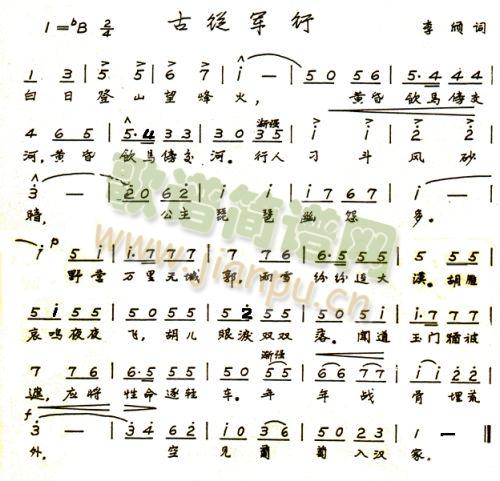 1=♭B 2/4 古從军行 李颀 词
1 3 5 5 | 6 7 | i — | 5 0 5 6 | 5·4 4 4 |
白日登山望烽火， 黄昏饮马傍交
4 6 5 | 5·4 3 3 | 3 0 3 5 | i i | 2 2 |
渐强
河。黄昏 饮马傍交河。行人刁斗风砂
3 — | 2 0 6 2 | i — | i 7 6 7 | i — |
暗， 公主琵琶幽怨多。
i p 5 i | i·7 7 7 | 7 7 6 | 6·5 5 5 | 5 5 5 |
野营万里无城郭，雨雪纷纷连大漠。胡雁
5 i 5 5 | 5 0 5 5 | 5 2 5 5 | 5 0 5 i | i·7 7 7 |
哀鸣夜夜飞，胡儿眼泪双双落。闻道玉门犹被
渐强
7 7 6 | 6·5 5 5 | 5 0 5 5 | 6 6 7 7 | i i 2 2 |
遮，应将性命逐轻车。年年战骨埋荒
f
3 — | 3 4 6 2 | i 0 3 6 | 5 0 2 3 | 1 — ‖
外。 空见葡萄入汉家。
歌谱简谱网
www.jianpu.cn